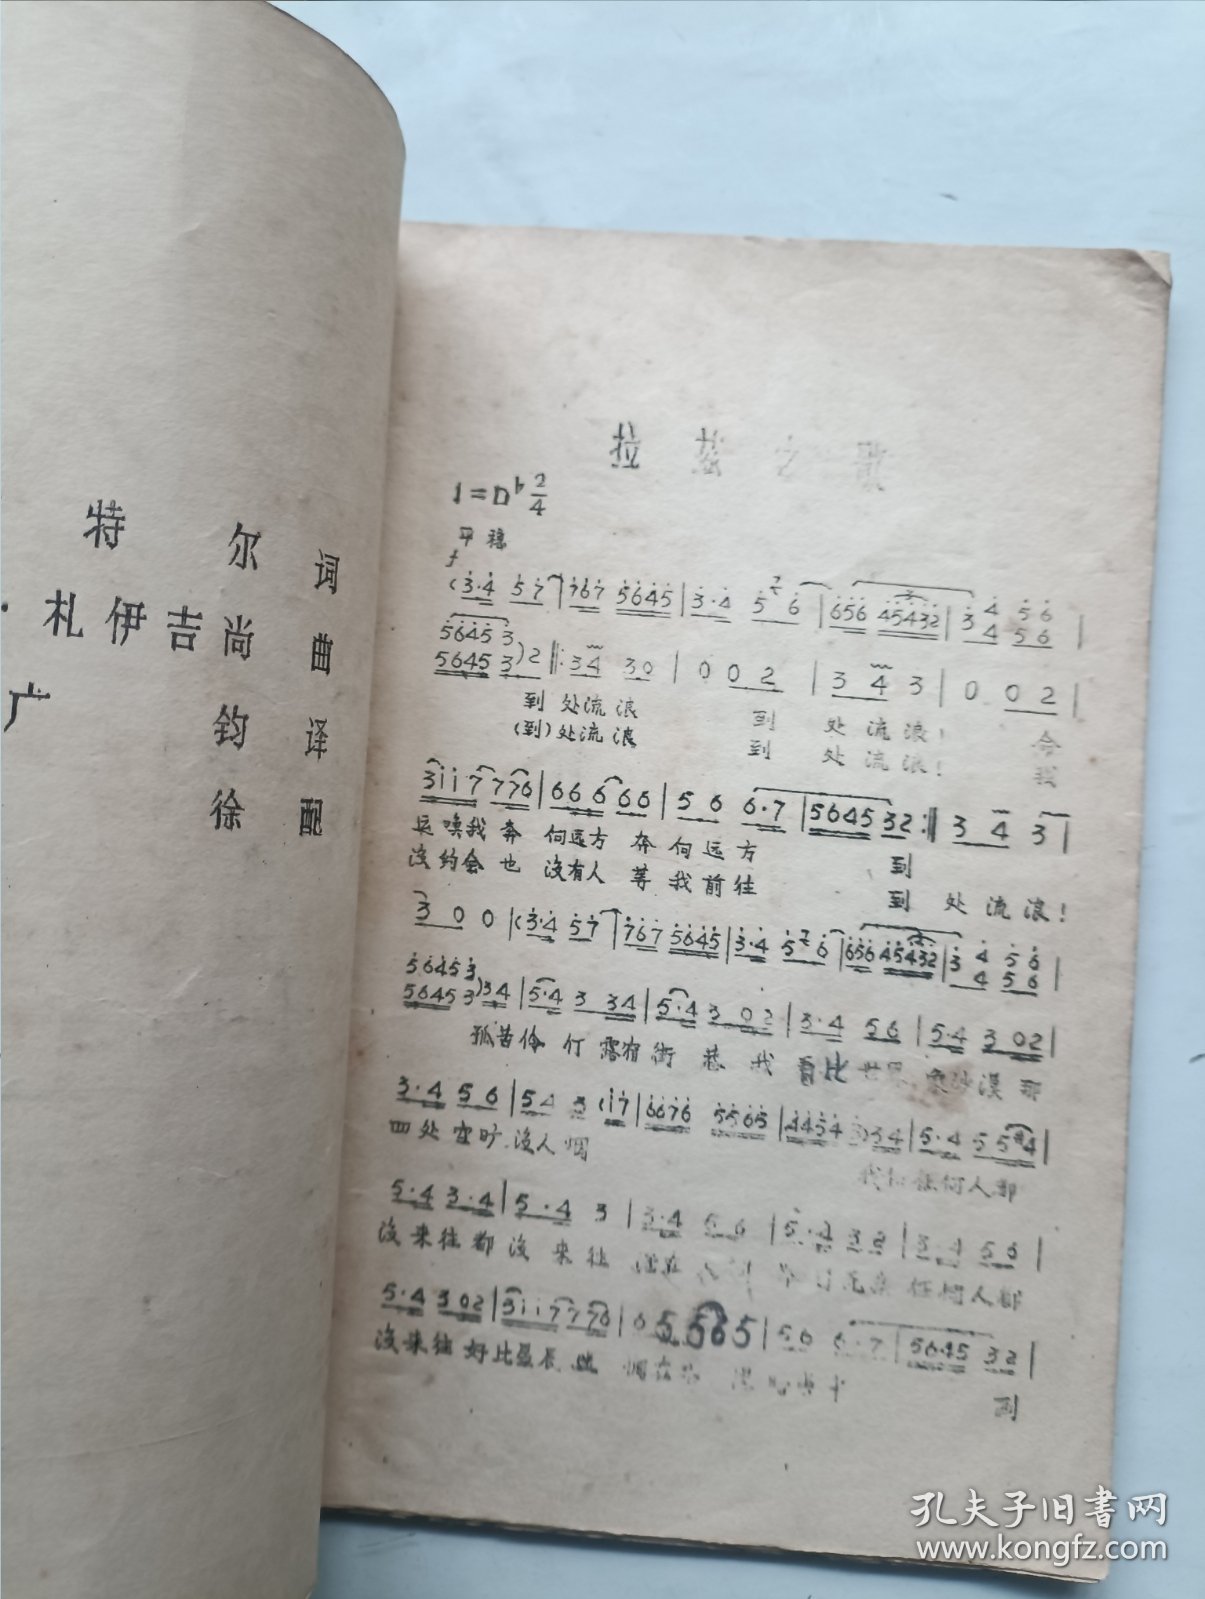 特 尔 词
·札伊吉尚 曲
广 钧 译
徐 配
拉兹之歌
1=D♭ 2/4
平稳
f
(3·4 57|767 5645|3·4 5 6|656 45432|3 4 5 6|
4 5 6
5645 3
5645 3)2‖:34 30|0 0 2|3 4 3|0 0 2|
到 处流浪 到 处流浪! 命
(到)处流浪 到 处流浪! 我
3ii7 776|666 66|5 6 6·7|5645 32:‖3 4 3|
运唤我奔 向远方 奔向远方 到
没约会也 没有人 等我前往 到处流浪!
3 0 0|(3·4 57|767 5645|3·4 5 6|656 45432|3 4 5 6|
4 5 6
5645 3
5645 3)34|5·4 3 34|5·4 3 02|3·4 56|5·4 3 02|
孤苦伶仃 露宿街巷 我看比世界象沙漠 那
3·4 56|54 3 (i7|6676 5565|4454 3)34|5·4 5 5#4|
四处空旷没人烟 我和任何人都
5·4 3·4|5·4 3|3·4 56|5·4 32|3·4 56|
没来往都没来往 任何人都
5·4 302|3ii7 776|6 5 565|56 6·7|5645 32|
没来往好比星辰 到
孔夫子旧书网
www.kongfz.com